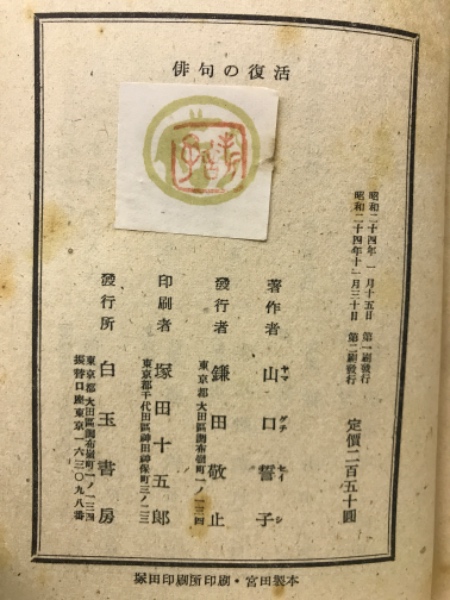 俳句の復活
昭和二十四年 一月十五日 第一刷發行
昭和二十四年十一月三十日 第二刷發行
定價二百五十圓
著作者 山口誓子
ヤマ グチ セイ シ
發行者 鎌田敬止
東京都大田區調布嶺町一ノ一三四
印刷者 塚田十五郎
東京都千代田區神田神保町三ノ二三
發行所 白玉書房
東京都大田區調布嶺町一ノ一三四
振替口座東京一六三〇九八番
塚田印刷所印刷・宮田製本